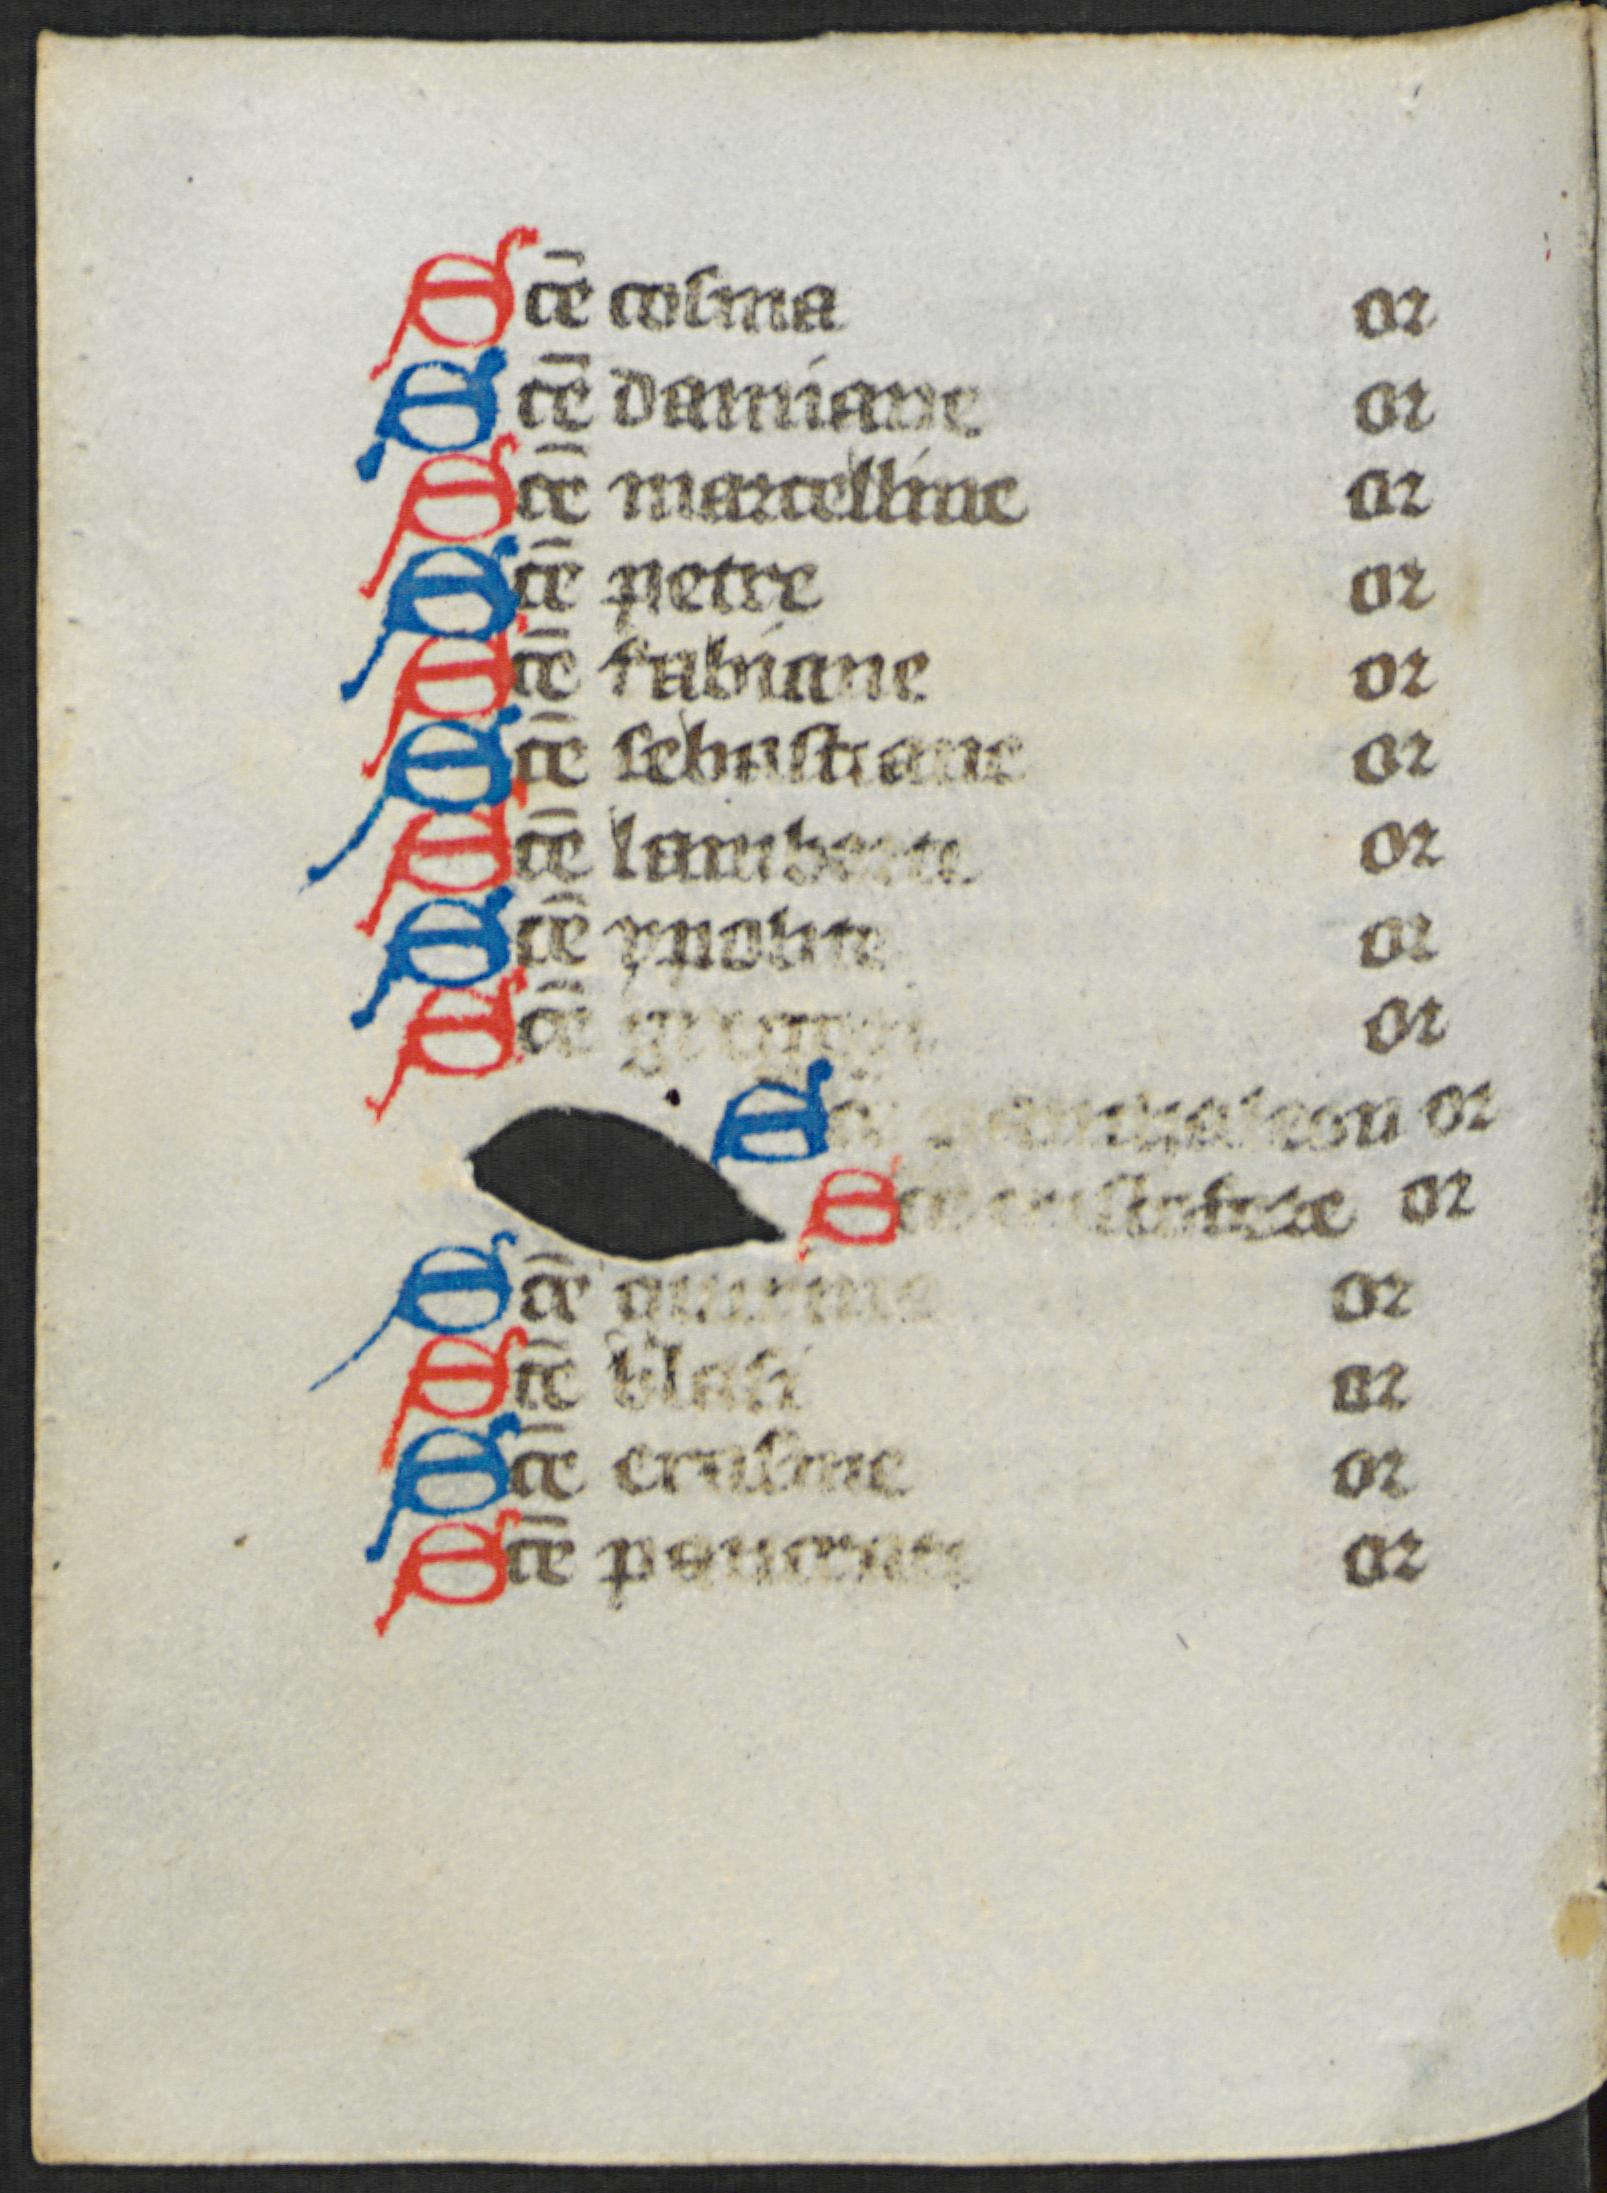 Scē cosma or
Scē damiane or
Scē marcelline or
Scē petre or
Scē fabiane or
Scē sebastiane or
Scē lamberte or
Scē ypolite or
Scē or
Scē panthaleon or
Scē or
Scē quirine or
Scē blasi or
Scē erasme or
Scē pancrati or